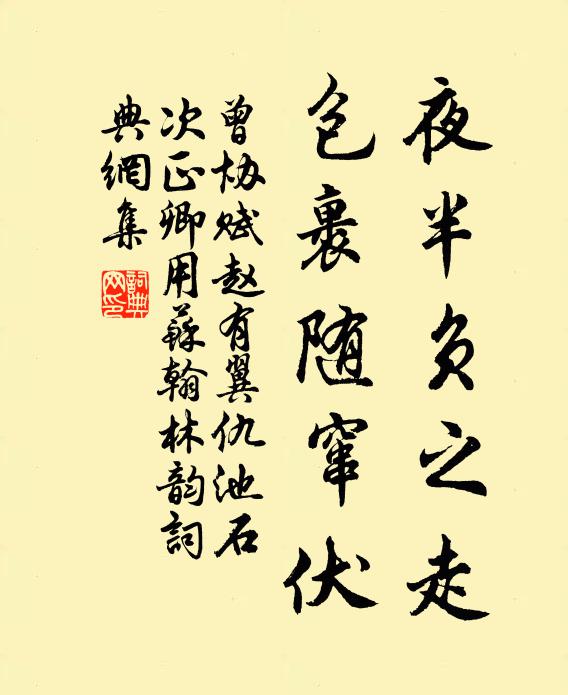 夜半負之走
包裹随窜伏
曾协赋赵有翼仇池石
次正卿用蘇翰林韵詞
典網集
詞典網印